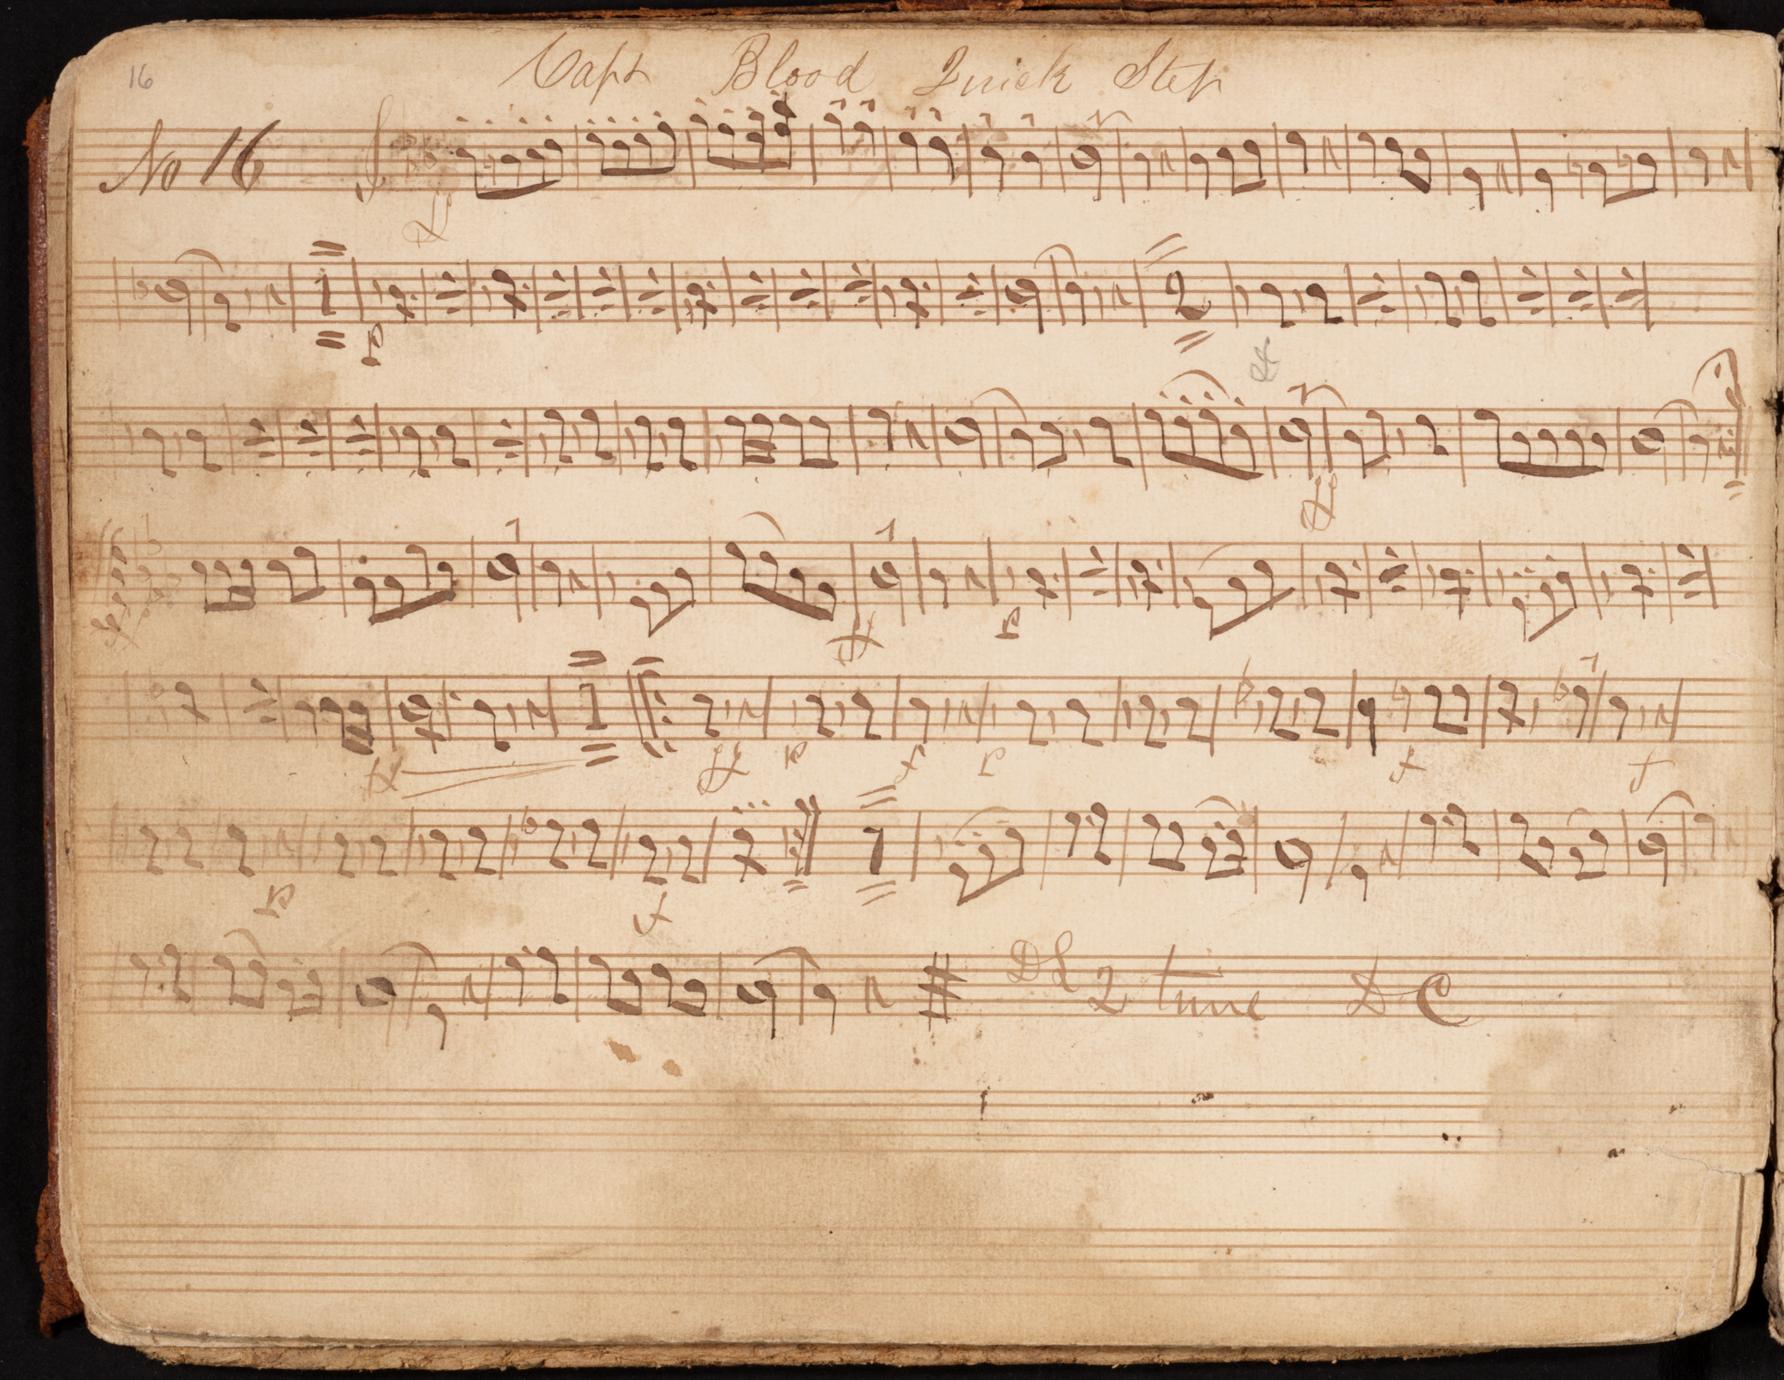 16
Capt Blood Quick Step
No 16
1
2
1
7
2 time D C